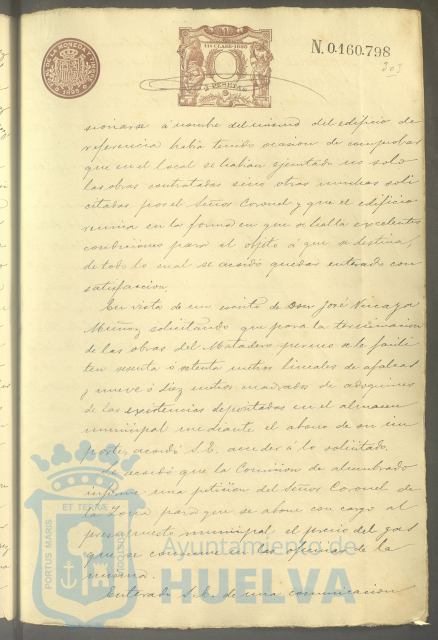 11ª CLASE 1895
2 PESETAS
N. 0.160.798
303
sionarse á nombre del mismo del edificio de
referencia había tenido ocasion de comprobar
que en el local se habían ejecutado no solo
las obras contratadas sino otras muchas soli
citadas por el Señor Coronel y que el edificio
reunia en la forma en que se halla excelentes
condiciones para el objeto á que se destina,
de todo lo cual se acordó quedar enterado con
satisfaccion.
En vista de un escrito de Don José Nicaya
Muñoz solicitando que para la terminacion
de las obras del Matadero permuta se le facili
ten sesenta ó setenta metros lineales de
y nueve ó diez metros cuadrados de adoquines
de las existencias depositadas en el almacen
municipal mediante el abono de su im
porte, acordó S.E. acceder á lo solicitado.
Se acordó que la Comision de alumbrado
informe una peticion del Señor Coronel de
la Zona para que se abone con cargo al
presupuesto municipal el precio del gas
que se consume en las oficinas de la
misma.
Enterado S.E. de una comunicacion
PORTUS MARIS
ET TERRÆ
CUSTODIA
Ayuntamiento de
HUELVA